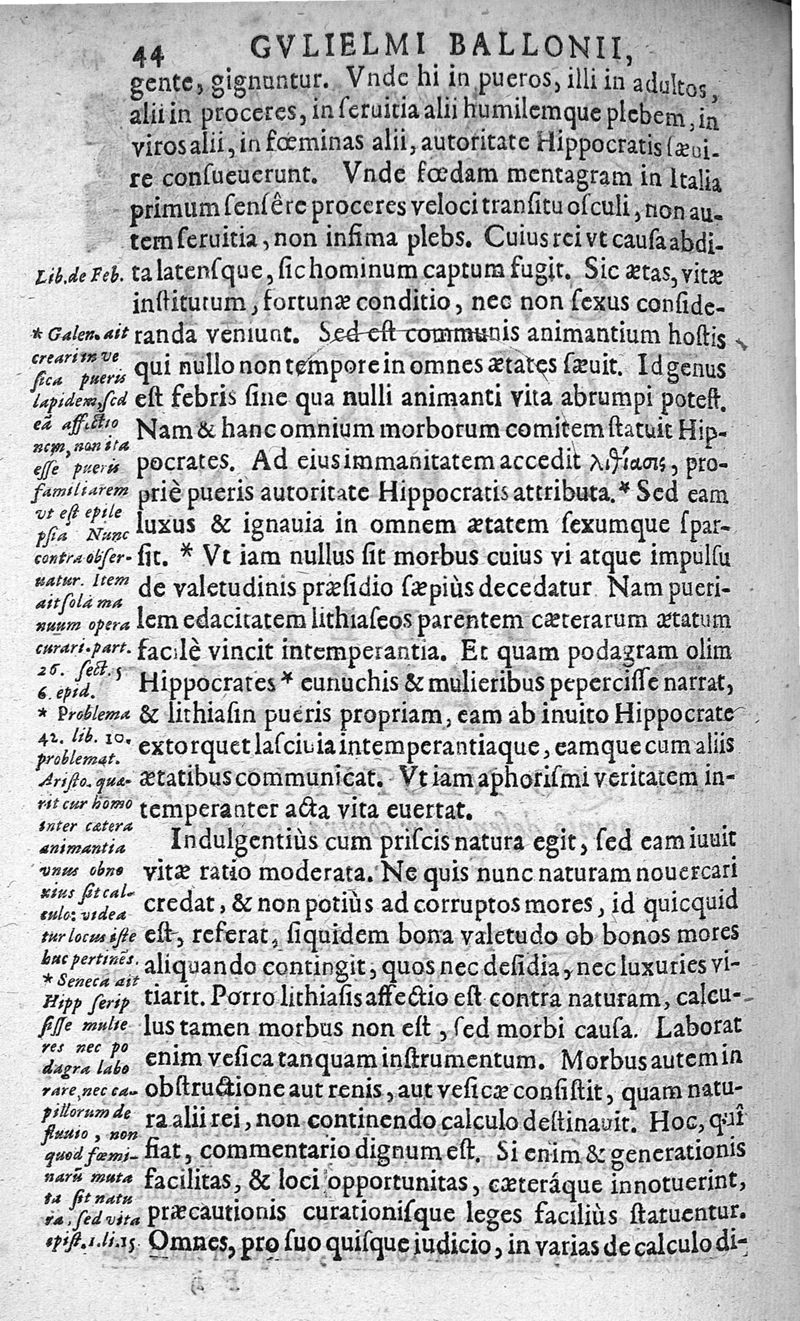 44 GVLIELMI BALLONII,
gente, gignuntur. Vnde hi in pueros, illi in adultos,
alii in proceres, in ſeruitia alii humilemque plebem, in
viros alii, in fœminas alii, autoritate Hippocratis ſæui-
re conſueuerunt. Vnde fœdam mentagram in Italia
primum ſenſêre proceres veloci tranſitu oſculi, non au-
tem ſeruitia, non infima plebs. Cuius rei vt cauſa abdi-
ta latenſque, ſic hominum captum fugit. Sic ætas, vitæ
inſtitutum, fortunæ conditio, nec non ſexus conſide-
randa veniunt. Sed eſt communis animantium hoſtis
qui nullo non tempore in omnes ætates ſæuit. Id genus
eſt febris ſine qua nulli animanti vita abrumpi poteſt.
Nam & hanc omnium morborum comitem ſtatuit Hip-
pocrates. Ad eius immanitatem accedit λιθίασις, pro-
priè pueris autoritate Hippocratis attributa.* Sed eam
luxus & ignauia in omnem ætatem ſexumque ſpar-
ſit. * Vt iam nullus ſit morbus cuius vi atque impulſu
de valetudinis præſidio ſæpiùs decedatur Nam pueri-
lem edacitatem lithiaſeos parentem cæterarum ætatum
facilè vincit intemperantia. Et quam podagram olim
Hippocrates* eunuchis & mulieribus peperciſſe narrat,
& lithiaſin pueris propriam, eam ab inuito Hippocrate
extorquet laſciuia intemperantiaque, eamque cum aliis
ætatibus communicat. Vt iam aphoriſmi veritatem in-
temperanter acta vita euertat.
Indulgentiùs cum priſcis natura egit, ſed eam iuuit
vitæ ratio moderata. Ne quis nunc naturam nouercari
credat, & non potiùs ad corruptos mores, id quicquid
eſt, referat, ſiquidem bona valetudo ob bonos mores
aliquando contingit, quos nec deſidia, nec luxuries vi-
tiarit. Porro lithiaſis affectio eſt contra naturam, calcu-
lus tamen morbus non eſt, ſed morbi cauſa. Laborat
enim veſica tanquam inſtrumentum. Morbus autem in
obſtructione aut renis, aut veſicæ conſiſtit, quam natu-
ra alii rei, non continendo calculo deſtinauit. Hoc, quî
fiat, commentario dignum eſt. Si enim & generationis
facilitas, & loci opportunitas, cæteráque innotuerint,
præcautionis curationiſque leges faciliùs ſtatuentur.
Omnes, pro ſuo quiſque iudicio, in varias de calculo di-
Lib. de Feb.
* Galen. ait
creari in ve
ſica pueris
lapidem, ſed
eã affectio
nem, non ita
eſſe pueris
familiarem
vt eſt epile
pſia Nunc
contra obſer-
uatur. Item
ait ſolâ ma
nuum opera
curari. part.
26. ſect. 5
6. epid.
* Problema
42. lib. 10.
problemat.
Ariſto. quæ-
rit cur homo
inter cætera
animantia
vnus obno
xius ſit cal-
culo: videa
tur locus iſte
huc pertinēs.
* Seneca ait
Hipp ſcrip
ſiſſe mulie
res nec po
dagra labo
rare, nec ca-
pillorum de
fluuio, non
quod fœmi-
narũ muta
ta ſit natu
ra, ſed vita
epiſt. 1. li. 15